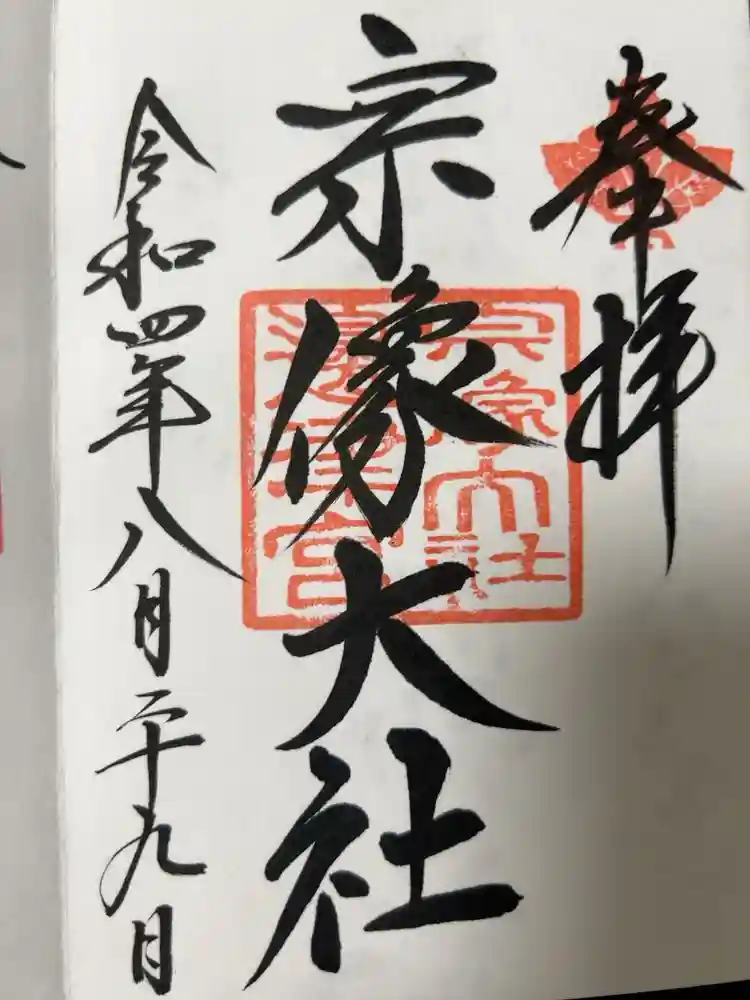 奉拝
宗像大社
宗像大社
邊津宮
令和四年八月二十九日